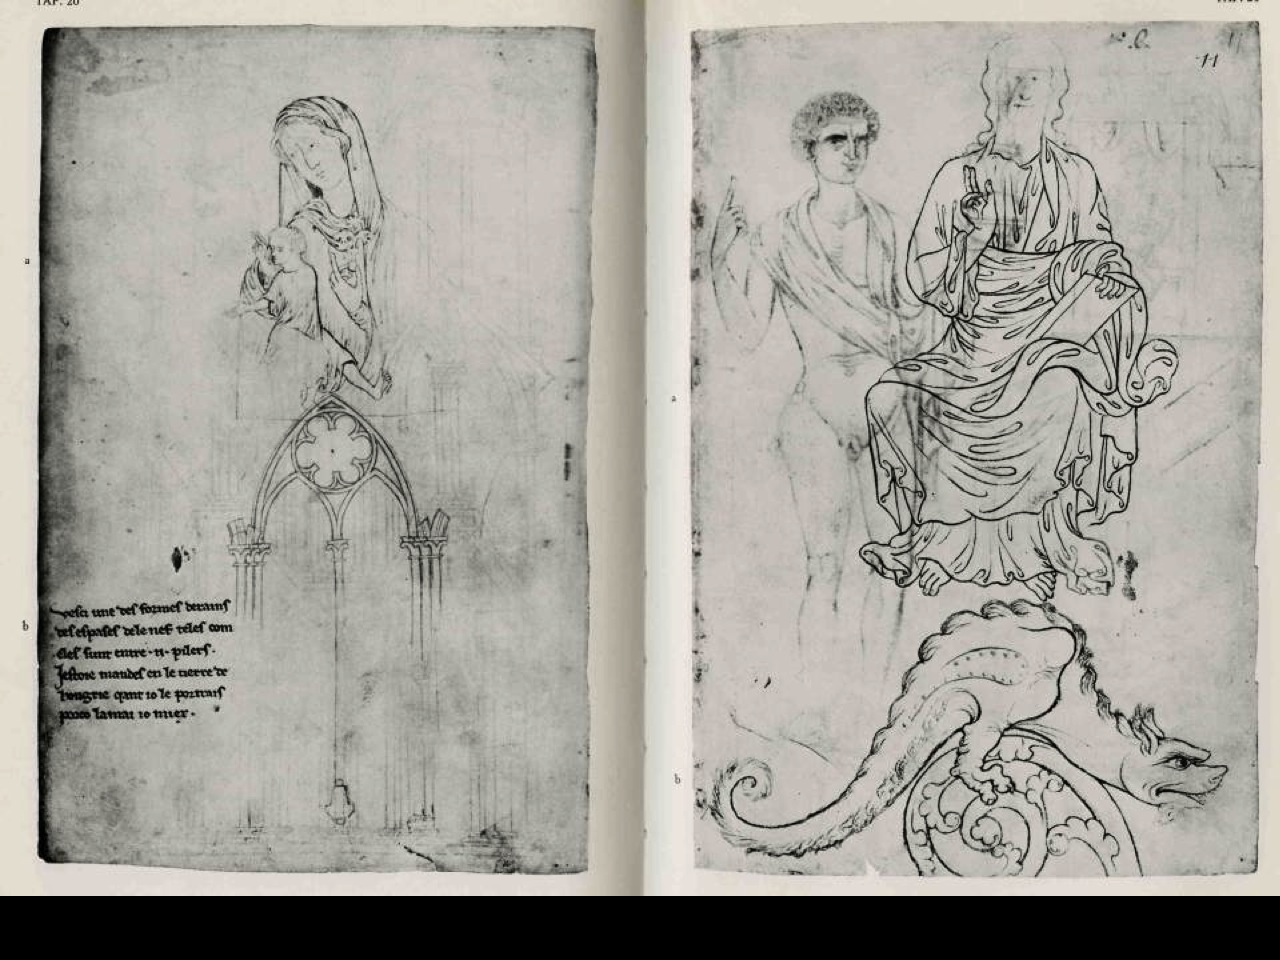 TAF. 20
a
b
Vesci une des formes derains
des espases dele nef teles com
eles sunt entre · ii · pilers ·
Jestoie mandes en le tierre de
hongrie qant io le portrais
por co lamai io miex ·
11
a
b